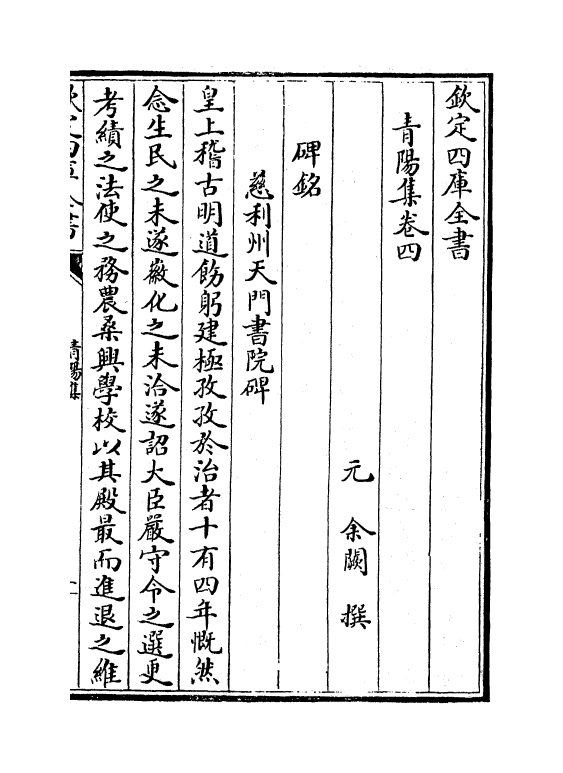 欽定四庫全書
青陽集卷四
元 余闕 撰
碑銘
慈利州天門書院碑
皇上稽古明道飭躬建極孜孜於治者十有四年慨然
念生民之未遂徽化之未洽遂詔大臣嚴守令之選更
考績之法使之務農桑興學校以其殿最而進退之維
欽定四庫全書
青陽集